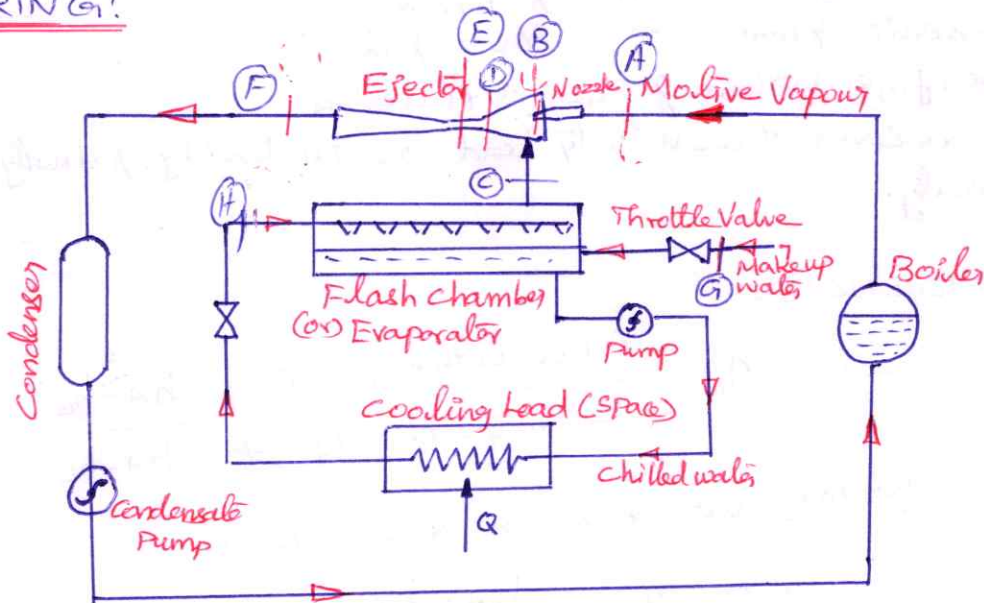 RING:
E
B
A
F
Ejector
D
Nozzle
Motive Vapour
C
H
Throttle Valve
Makeup
water
G
Boiler
Flash chamber
(or) Evaporator
Pump
Condenser
Cooling Load (Space)
Chilled water
Q
Condensate
Pump